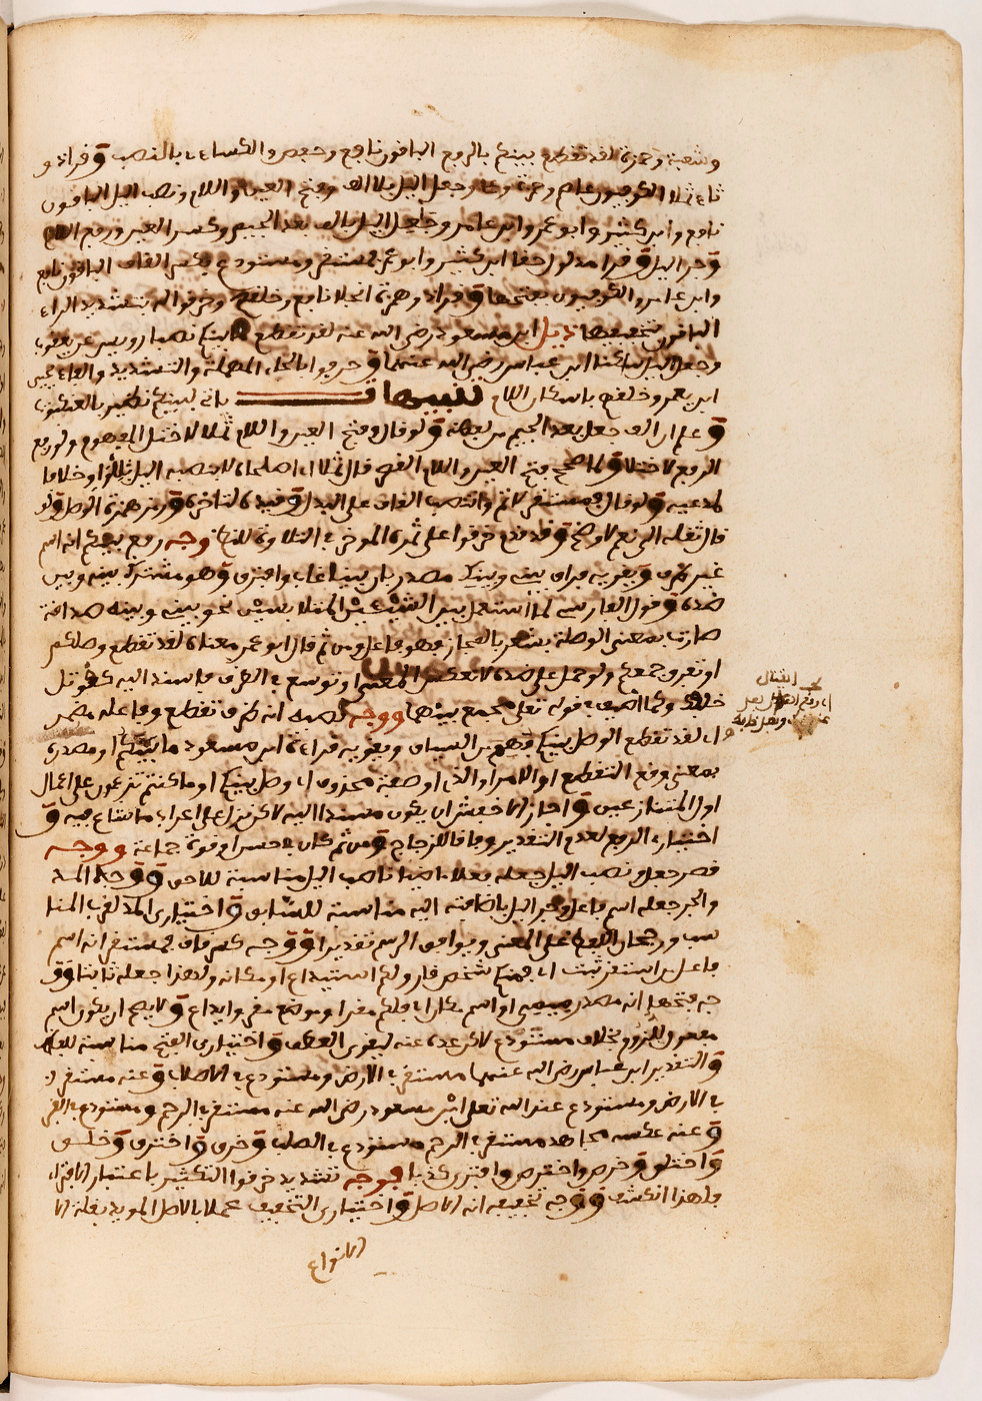 وشعبة وحمزة لقد تقطع بينكم بالرفع الباقون نافع وحفص والكساءى بالنصب وقرا ذو
ثاء ثلا الكوفيون عاصم وحمزة وعلى وجعل اليل بلا الف وفتح العين واللام ونصب اليل الباقون
نافع وابن كثير وابو عمرو وابن عامر وجاعل اليل بالف بعد الجيم وكسر العين ورفع اللام
وجر اليل وقرا مدلول حقا ابن كثير وابو عمرو فمستقر ومستودع بكسر القاف الباقون نافع
وابن عامر والكوفيون بفتحها وقرا ذو همزة انجلا نافع وخلقهم وخرقوا له بتشديد الراء
الباقون بتخفيفها ابن مسعود رضي الله عنه لقد تقطع ما بينكم نصبا رويس عن يعقوب
وجعل اليل ساكنا ابن عباس رضي الله عنهما وحرفوا بالحاء المهملة والتشديد والفاء يحيى
ابن يعمر وخلقهم باسكان اللام تنبيهات ياتى لبينكم نظير بالعنكبوت
وعلم ان الف جعل بعد الجيم من لفظه ولو قال وفتح العين واللام ثملا لاختل المفهوم ولو رفع
الرفع لاختلا ولما صحح فتح العين واللام الغى قال ثملا اى اصلحاه لا بنصبه اليل
لمدعيه ولو قال فمستقر لاتم وانتصب القاف على البدل وقيده لتاخره ورمز همزة الوصل ولو
قال ثقله الى نفع لاوضح وقد قدم خرقوا على ثمره الموخر فى التلاوة للنظم وجه رفع بينكم انه اسم
غير ظرف ويقويه فراق بينى وبينك مصدر بان بينا غاب وافترق وهو مشترك بينه وبين
ضده وقول الفارسى لما استعمل بين الشيئين المتلابسين نحو بينى وبينه صداقة
صارت بمعنى الوصلة يشعر بالمجاز وهو فاعل ومن ثم قال ابو عمرو معناه لقد تقطع وصلكم
او تفرق جمعكم ولو حمل على ضده لانعكس المعنى او توسع فى الظرف فاسند اليه كقوتل
خلفكم وكما اضيف فى قوله تعلى مجمع بينهما ووجه نصبه انه ظرف تقطع وفاعله مضمر
اى لقد تقطع الوصل بينكم فهم من السياق ويقويه قراءة ابن مسعود ما بينكم او مصدرى
بمعنى وقع التقطع او الامر او الذى او صفة محذوف اى وصل بينكم او ما كنتم تزعمون على اعمال
اول المتنازعين واجاز الاخفش ان يكون مسندا اليه لاكن نزل على اعراب ما شاع فيه و
اختيارى الرفع لعدم التقدير وفاقا للزجاج ومن ثم كان حسرا وقوة جماعة ووجه
قصر جعل ونصب اليل جعله فعلا ماضيا ناصب اليل مناسبة للاحق ووجه المد
والجر جعله اسم فاعل وجر اليل باضافته اليه مناسبة للسابق واختيارى المد لقرب المنا
سب ورجحان اللفظ على المعنى ويوافق الرسم تقديرا ووجه كسر قاف فمستقر انه اسم
فاعل من استقر ثبت اى فمنكم شخص قار ولكم استيداع او مكانه ولهذا جعله ثابتا وو
جه فتحها انه مصدر ميمى او اسم مكان اى فلكم مقر او موضع مقر وايداع ولا يصح ان يكون اسم
مفعول للزوم بخلاف مستودع لاكن عدل عنه لتقوى العطف واختيارى الفتح مناسبة للعطف
والتقدير ابن عباس رضي الله عنهما مستقر فى الارض ومستودع فى الاصلاب وعنه مستقر
فى الارض ومستودع عند الله تعلى ابن مسعود رضي الله عنه مستقر فى الرحم ومستودع فى القبر
وعنه عكسه مجاهد مستقر فى الرحم مستودع فى الصلب وخرق واخترق وخلق
واختلق وخرص واخترص وافترى كذبا فوجه تشديد خرقوا التكثير باعتبار الافترا
فلهذا انكشف ووجه تخفيفه انه الاصل واختيارى التخفيف عملا بالاصل المويد بقلة الا
الانواع